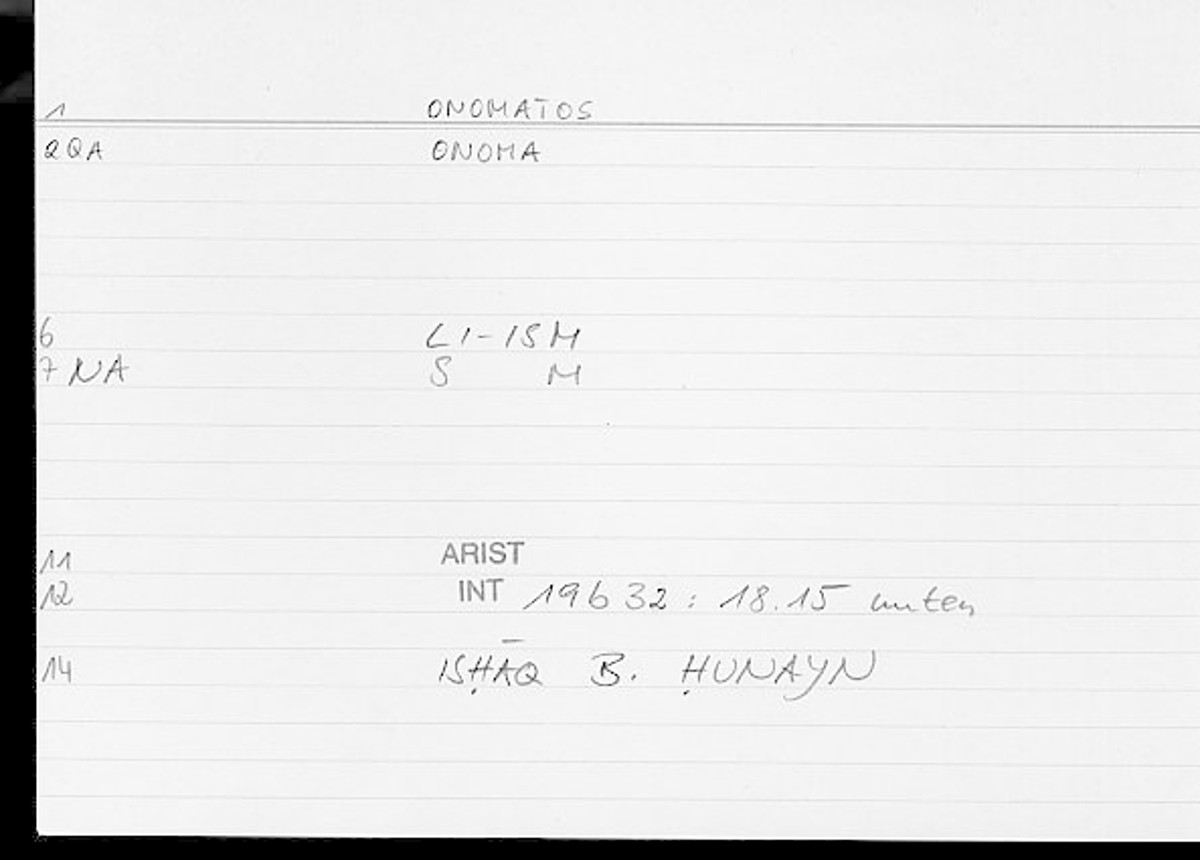 1 ONOMATOS
2 QA ONOMA
6 LI-ISM
7 NA S M
11 ARIST
12 INT 196 32 : 18.15 unten
14 ISḤĀQ B. ḤUNAYN